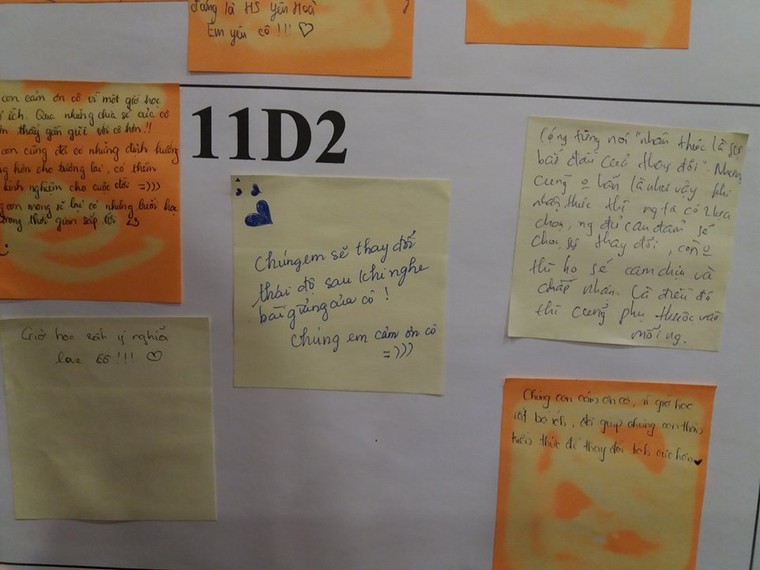 đang là HS Yên Hoà
Em yêu cô !!! ♡
11D2
con cảm ơn cô vì một giờ học
ích. Qua những chia sẻ của cô
thấy gần gũi với cô hơn!!
con cũng đã có những định hướng
hơn cho tương lai, có thêm
kinh nghiệm cho cuộc đời =)))
con mong sẽ lại có những buổi học
trong thời gian sắp tới <3
Chúng em sẽ thay đổi
thái độ sau khi nghe
bài giảng của cô !
Chúng em cảm ơn cô
=)))
Có từng nói "nhận thức là sự
bắt đầu của thay đổi". Nhưng
cũng o hẳn là như vậy khi
nhận thức thì ng ta có 2 lựa
chọn, ng đủ can đảm sẽ
chọn sự thay đổi, còn o
thì họ sẽ cam chịu và
chấp nhận. Là điều đó
thì cũng phụ thuộc vào
mỗi ng.
Giờ học rất ý nghĩa
!!! ♡
Chúng con cảm ơn cô, vì giờ học
rất bổ ích, đã giúp chúng con thêm
kiến thức để thay đổi tích cực hơn ♥